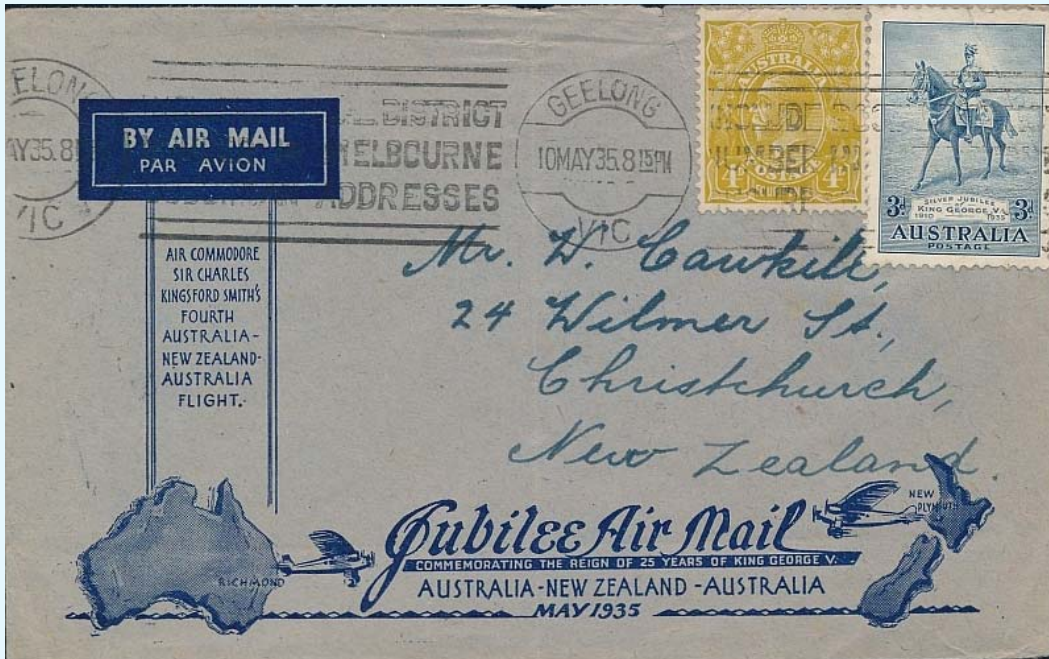 GEELONG
AY35.8
VIC
DISTRICT
MELBOURNE
ADDRESSES
GEELONG
10MAY35.8 15PM
VIC
BY AIR MAIL
PAR AVION
AUSTRALIA
4D 4D
POSTAGE
INCLUDE
NUMBER
SILVER JUBILEE
OF
KING GEORGE V.
1910 1935
3D 3D
AUSTRALIA
POSTAGE
AIR COMMODORE
SIR CHARLES
KINGSFORD SMITH'S
FOURTH
AUSTRALIA-
NEW ZEALAND-
AUSTRALIA
FLIGHT.
Mr. W. Cawkill,
24 Wilmer St.,
Christchurch,
New Zealand
RICHMOND
NEW
PLYMOUTH
Jubilee Air Mail
COMMEMORATING THE REIGN OF 25 YEARS OF KING GEORGE V.
AUSTRALIA-NEW ZEALAND-AUSTRALIA
MAY 1935